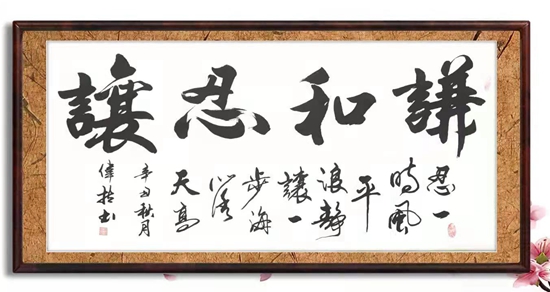 謙和忍讓
忍一
時風
平
浪靜
讓一
步海
闊
天高
辛丑秋月